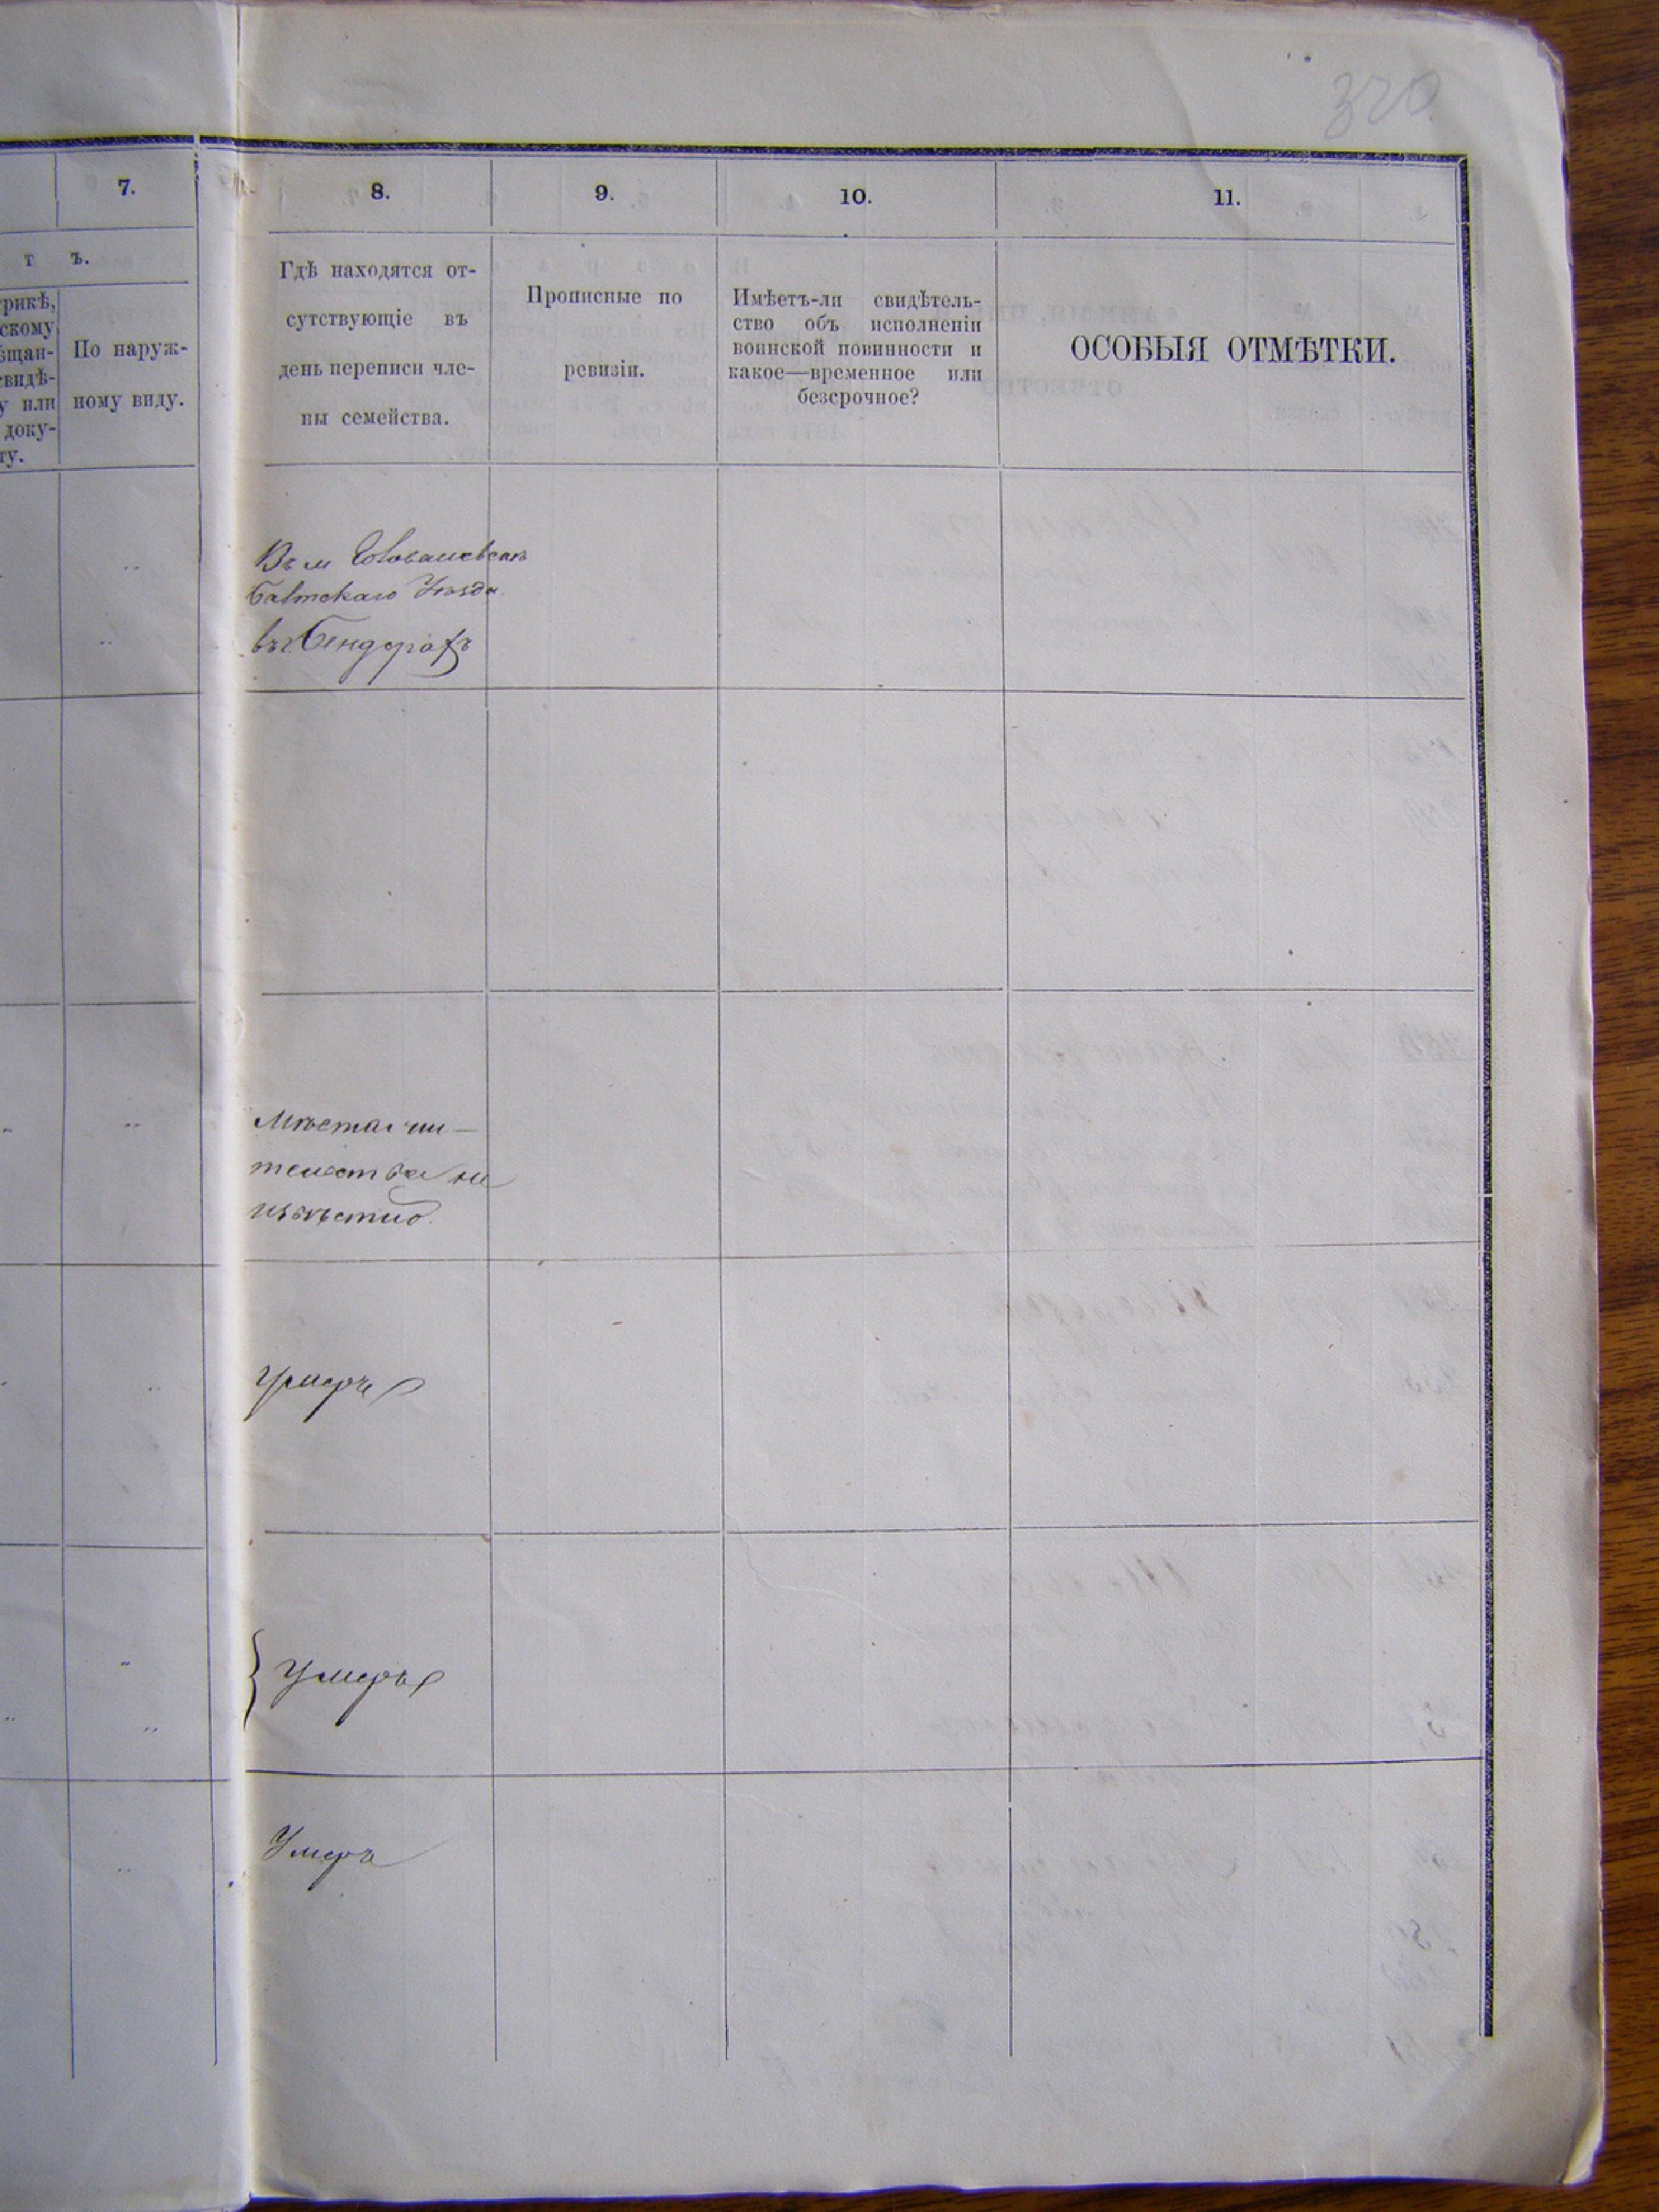 320
7.
8.
9.
10.
11.
т ъ.
рикѣ,
скому
ѣщан-
видѣ-
у или
доку-
ту.
По наруж-
ному виду.
Гдѣ находятся от-
сутствующіе въ
день переписи чле-
ны семейства.
Прописные по
ревизіи.
Имѣетъ-ли свидѣтель-
ство объ исполненіи
воинской повинности и
какое—временное или
безсрочное?
ОСОБЫЯ ОТМѢТКИ.
Въ м Голованевскѣ
Балтскаго Уѣзда
въ г Бендерахъ
Мѣста жи-
тельства не
извѣстно.
умеръ
Умеръ
Умеръ